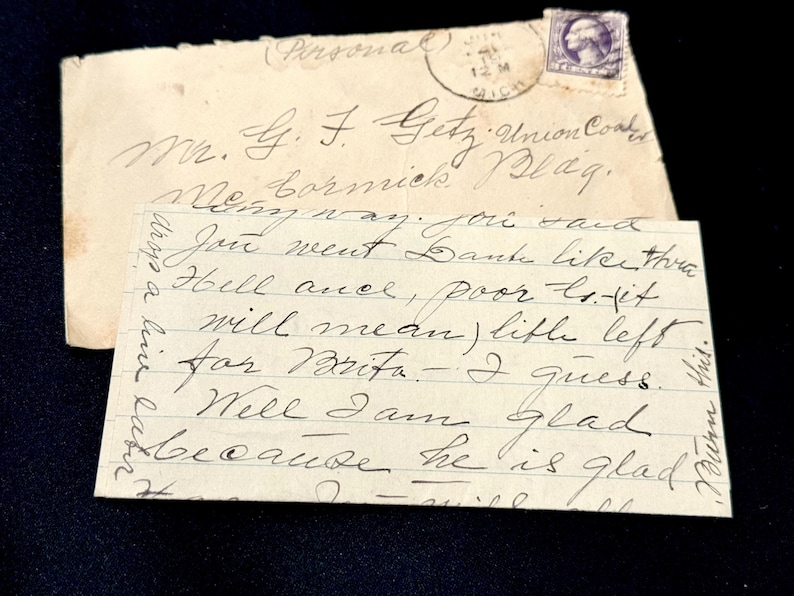 (Personal)
12 M
MICH
Mr. G. F. Getz. Union Coal
McCormick Bldg.
any way. You said
You went Dante like thru
Hell once, poor G.-(it
will mean) little left
for Brita - I guess.
Well I am glad
because he is glad
I will
drop a line later
Burn this.